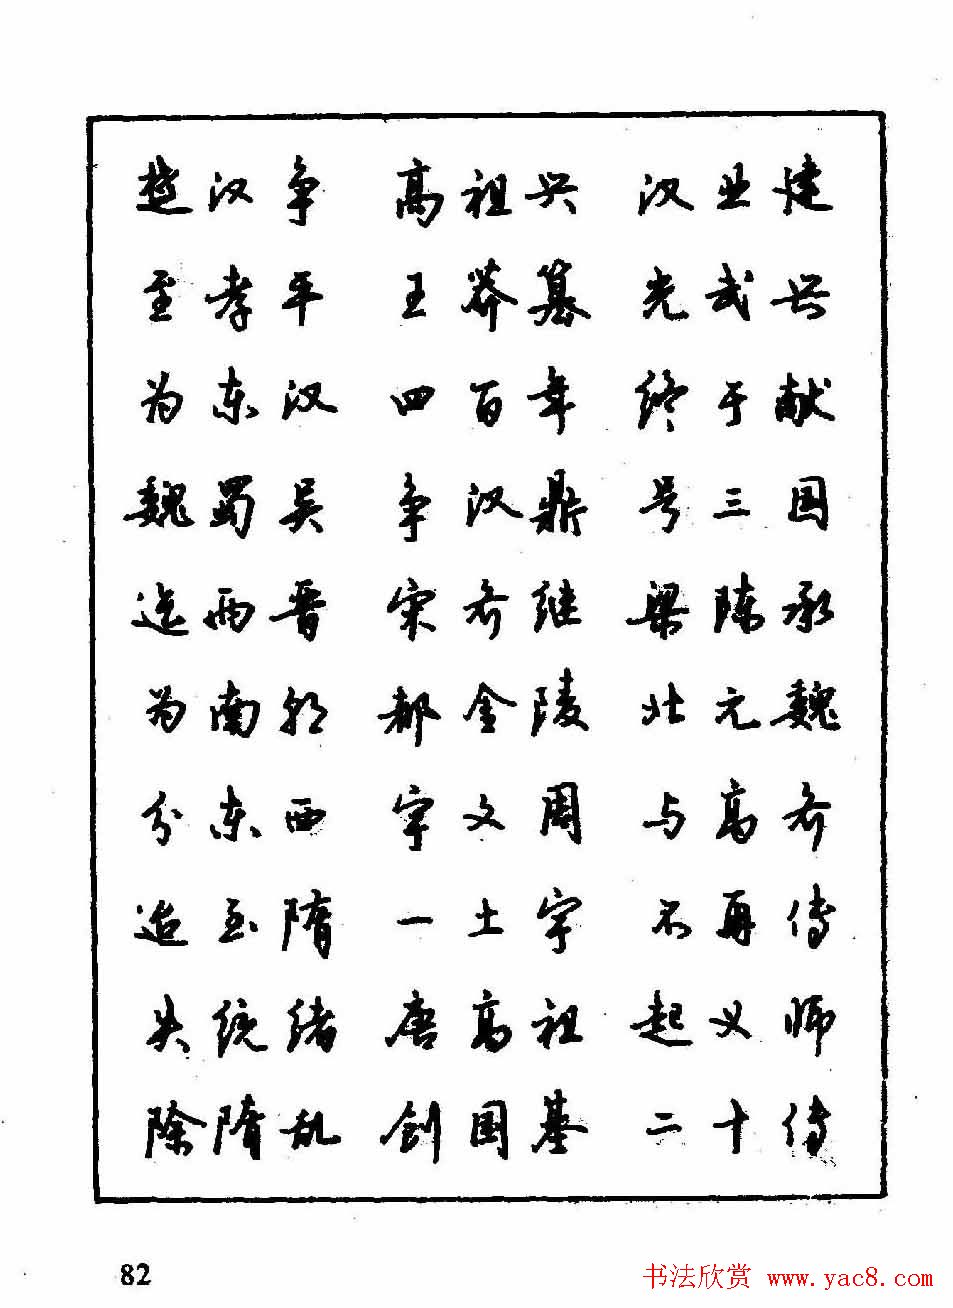 楚汉争 高祖兴 汉业建
至孝平 王莽篡 光武兴
为东汉 四百年 终于献
魏蜀吴 争汉鼎 号三国
迄两晋 宋齐继 梁陈承
为南朝 都金陵 北元魏
分东西 宇文周 与高齐
迨至隋 一土宇 不再传
失统绪 唐高祖 起义师
除隋乱 创国基 二十传
82
书法欣赏 www.yac8.com